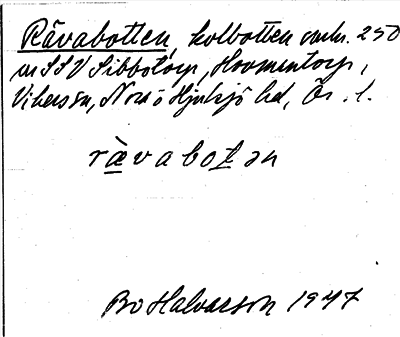 Rävabotten, kolbotten omkr. 250
m SSV Sibbotorp, Hovmantorp,
Nor o Hjulsjö hd, Ör. l.
rævabotən
Bo Halvarson 1947